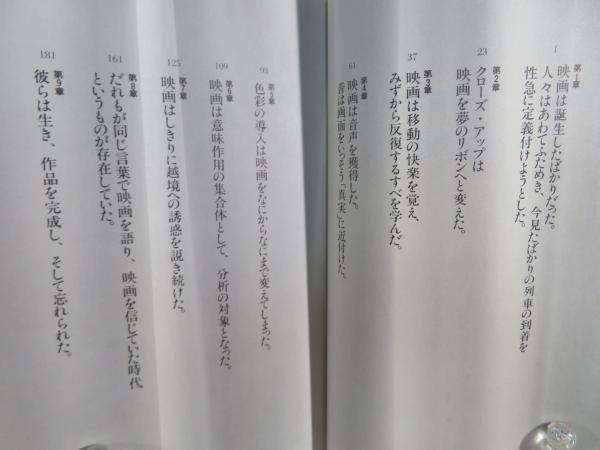 第1章
映画は誕生したばかりだった。
人々はあわてふためき、今見たばかりの列車の到着を
性急に定義付けようとした。
1
第2章
クローズ・アップは
映画を夢のリボンへと変えた。
23
第3章
映画は移動の快楽を覚え、
みずから反復するすべを学んだ。
37
第4章
映画は音声を獲得した。
音は画面をいっそう「真実」に近付けた。
61
第5章
色彩の導入は映画をなにからなにまで変えてしまった。
93
第6章
映画は意味作用の集合体として、分析の対象となった。
109
第7章
映画はしきりに越境への誘惑を説き続けた。
125
第8章
だれもが同じ言葉で映画を語り、映画を信じていた時代
というものが存在していた。
161
第9章
彼らは生き、作品を完成し、そして忘れられた。
181